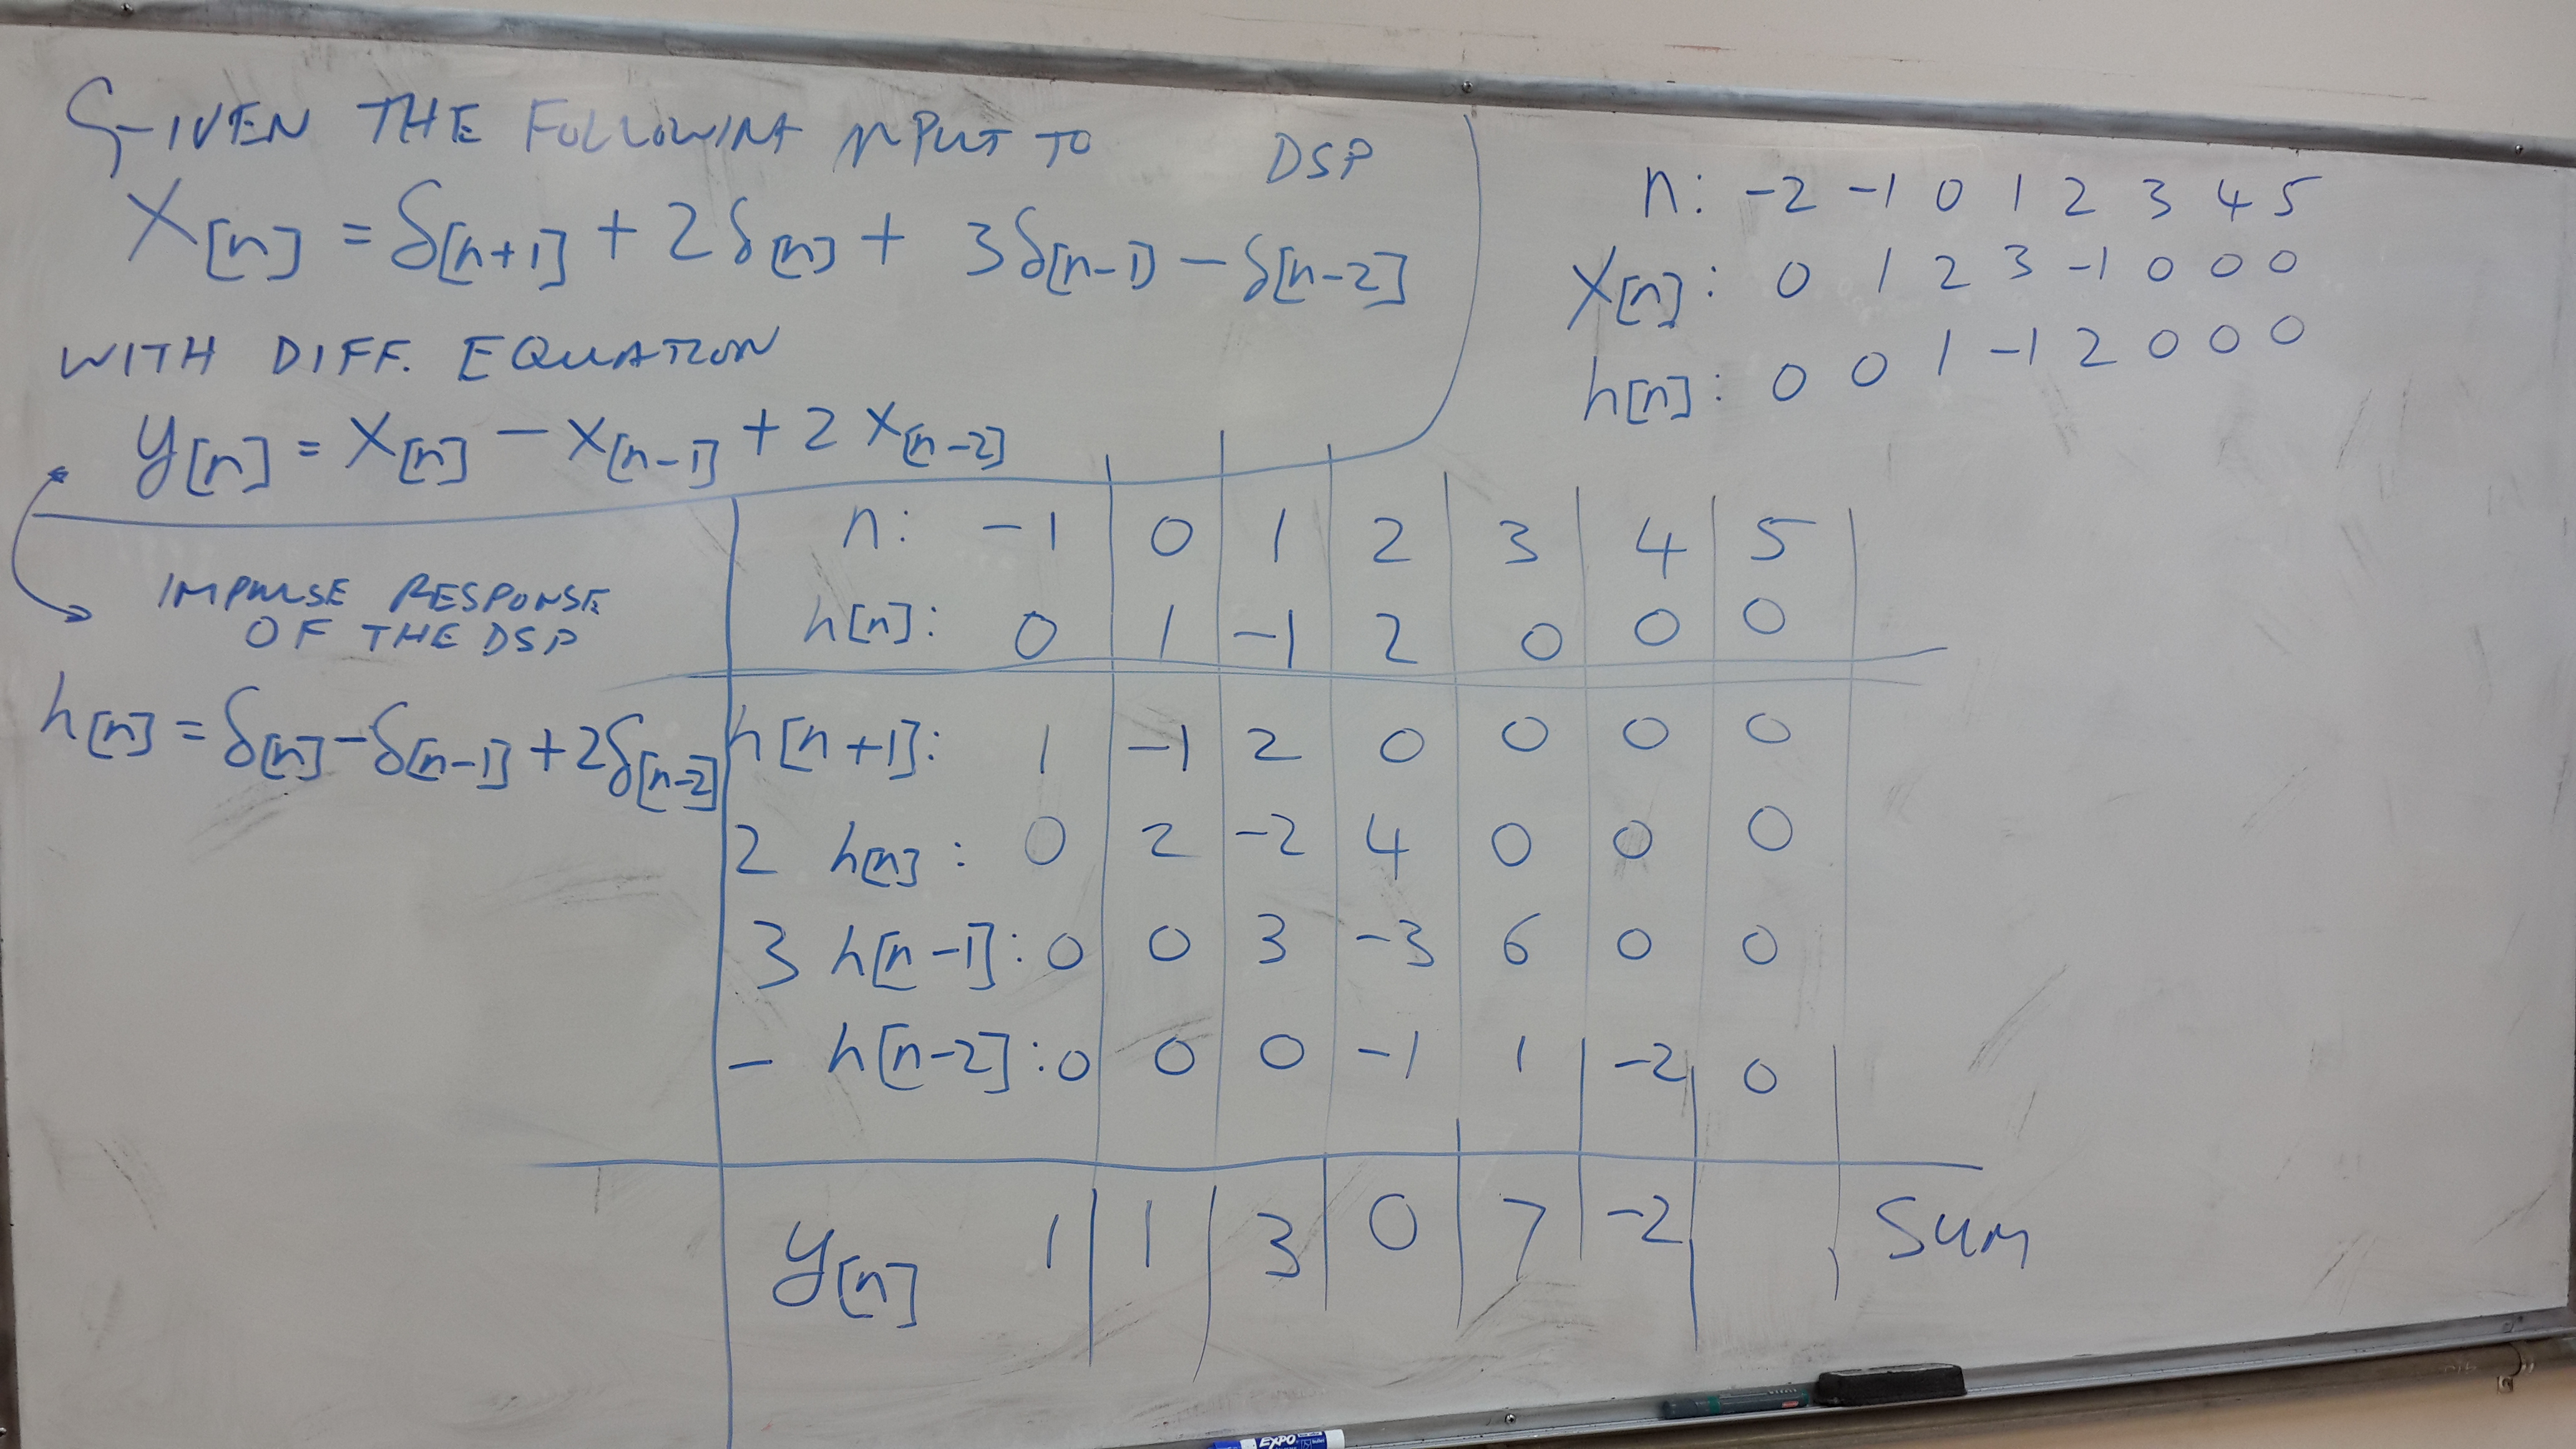 GIVEN THE FOLLOWING INPUT TO DSP
x[n] = δ[n+1] + 2δ[n] + 3δ[n-1] - δ[n-2]
WITH DIFF. EQUATION
y[n] = x[n] - x[n-1] + 2x[n-2]
n: -2 -1 0 1 2 3 4 5
x[n]: 0 1 2 3 -1 0 0 0
h[n]: 0 0 1 -1 2 0 0 0
IMPULSE RESPONSE
OF THE DSP
h[n] = δ[n] - δ[n-1] + 2δ[n-2]
n: -1 0 1 2 3 4 5
h[n]: 0 1 -1 2 0 0 0
h[n+1]: 1 -1 2 0 0 0 0
2 h[n]: 0 2 -2 4 0 0 0
3 h[n-1]: 0 0 3 -3 6 0 0
- h[n-2]: 0 0 0 -1 1 -2 0
y[n] 1 1 3 0 7 -2 SUM
EXPO